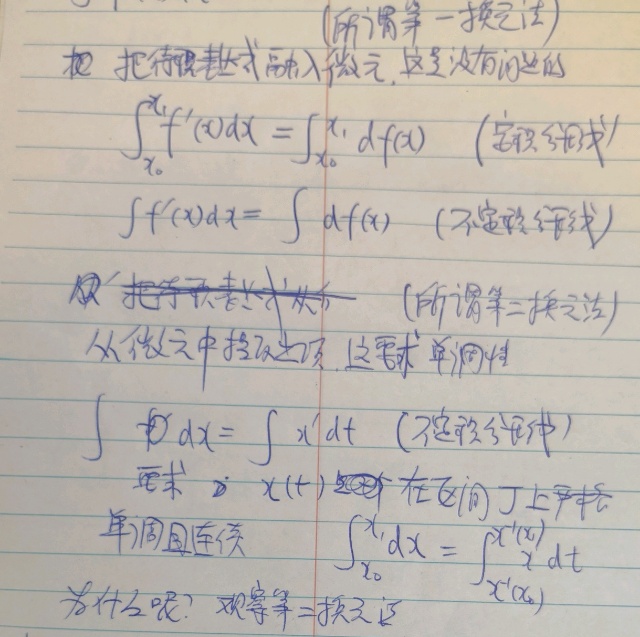 (所谓第一换元法)
把待积表达式融入微元,这是没有问题的
∫_{x₀}^{x₁} f'(x)dx = ∫_{x₀}^{x₁} df(x) (定积分形式)
∫f'(x)dx = ∫ df(x) (不定积分形式)
(所谓第二换元法)
从微元中提取出项,这要求单调性
∫ dx = ∫ x'dt (不定积分形式)
要求 x(t) 在区间 J 上严格
单调且连续 ∫_{x₀}^{x₁} dx = ∫_{x⁻¹(x₀)}^{x⁻¹(x₁)} x' dt
为什么呢? 观察第二换元法